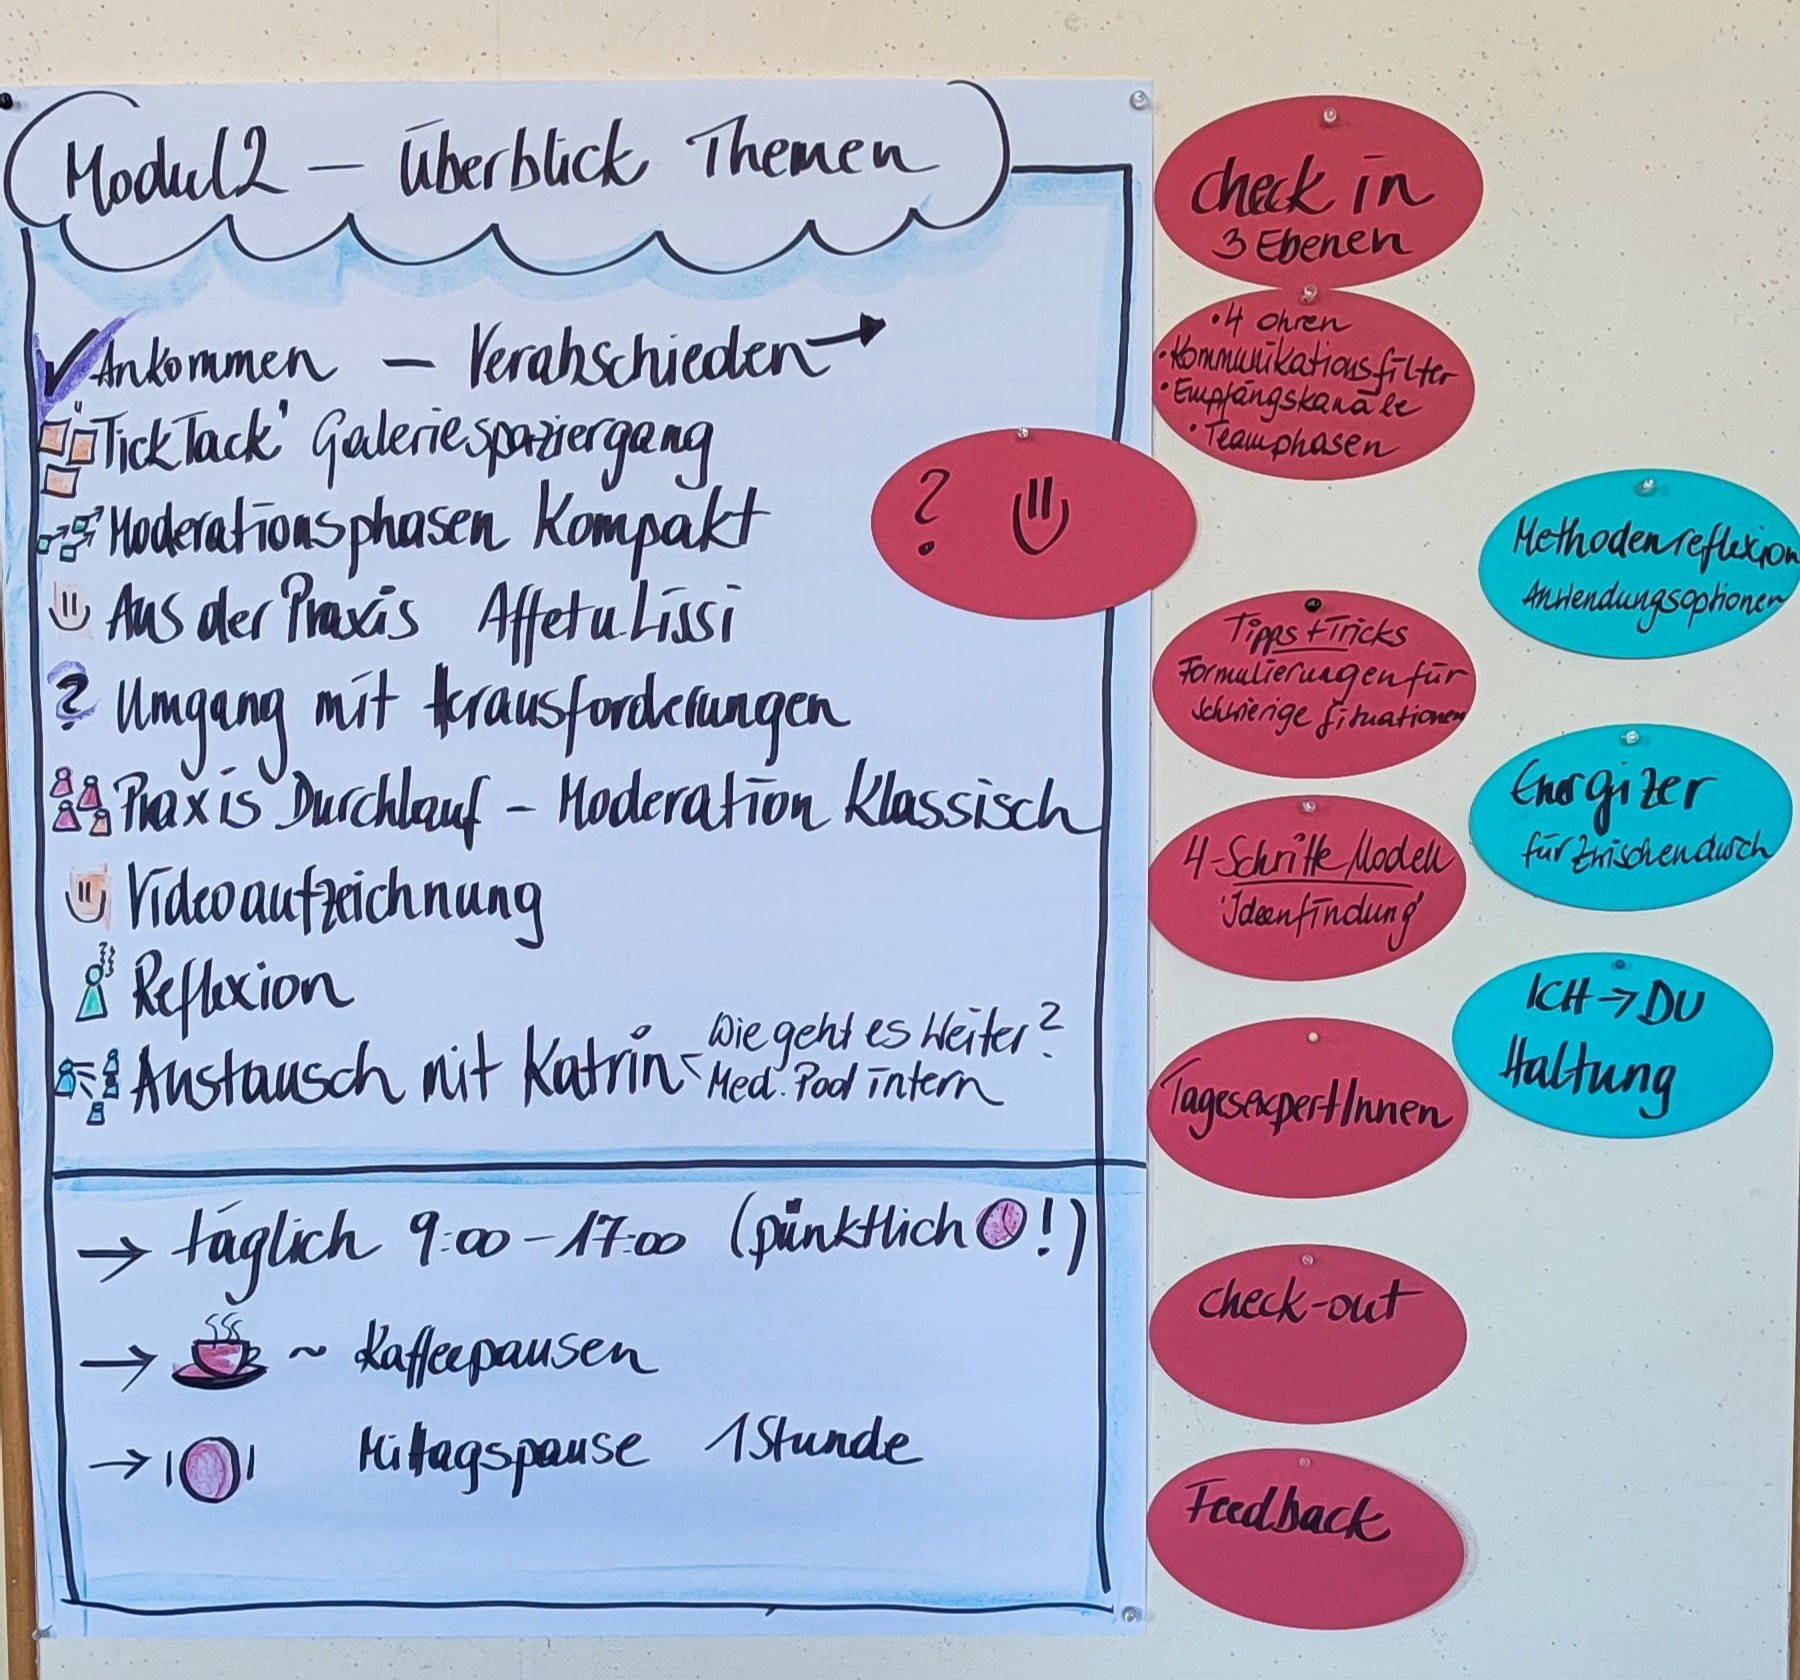 Modul 2 – Überblick Themen
Ankommen – Verabschieden →
"TickTack' Galeriespaziergang
Moderationsphasen Kompakt
Aus der Praxis Affetu Lissi
? Umgang mit Herausforderungen
Praxis Durchlauf – Moderation Klassisch
Videoaufzeichnung
Reflexion
Austausch mit Katrin < Wie geht es Weiter?
Med. Pool intern
→ täglich 9:00 – 17:00 (pünktlich !)
→ ~ Kaffeepausen
→ Mittagspause 1 Stunde
check in
3 Ebenen
• 4 Ohren
• Kommunikationsfilter
• Empfangskanäle
• Teamphasen
?
Tipps + Tricks
Formulierungen für
schwierige Situationen
4-Schritte Modell
'Ideenfindung'
TagesexpertInnen
check-out
Feedback
Methodenreflexion
Anwendungsoptionen
Energizer
für Zwischendurch
ICH → DU
Haltung